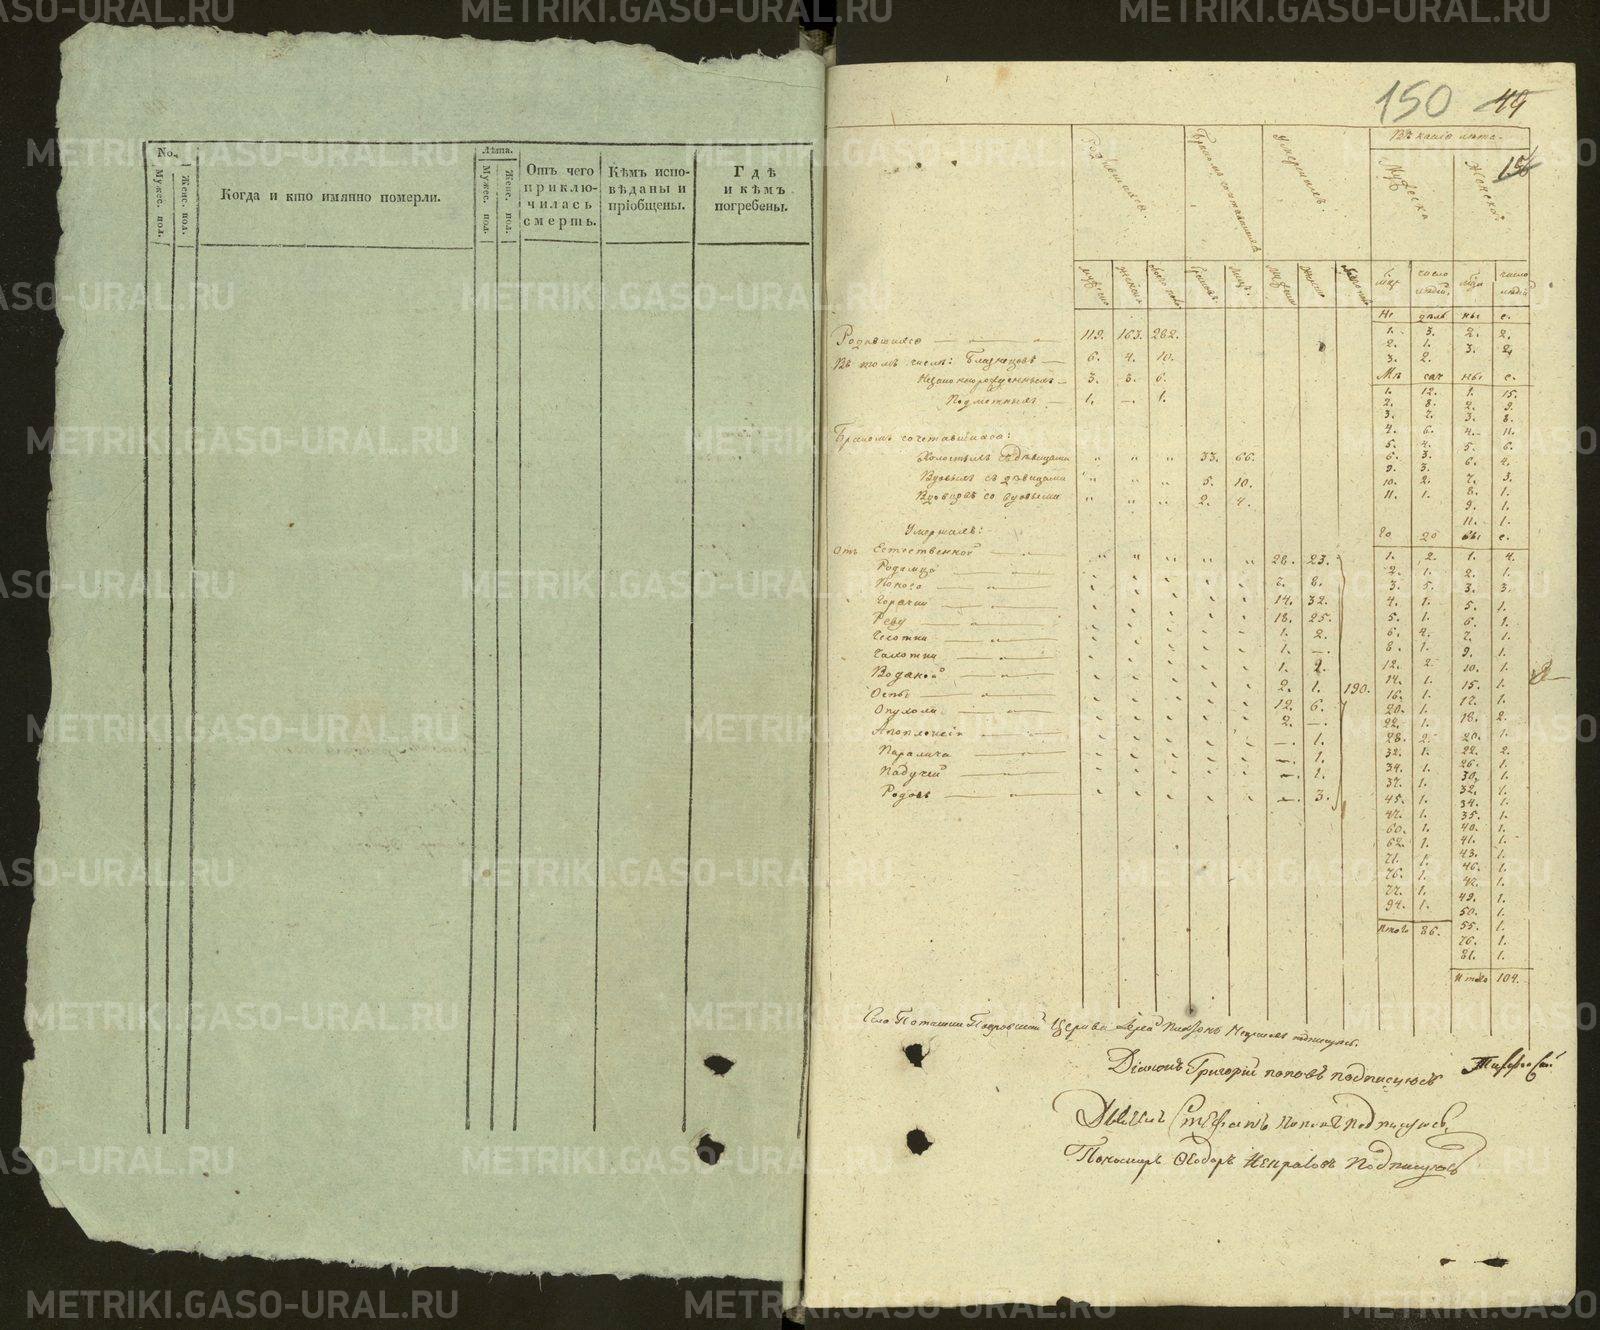 No.
Мужес. пол.
Женс. пол.
Когда и кто имянно померли.
Лѣта.
Мужес. пол.
Женс. пол.
Отъ чего приклю-
чилась смерть.
Кѣмъ испо-
вѣданы и
пріобщены.
Гдѣ
и кѣмъ
погребены.
150 49
156
Въ какіе лѣта.
Родившихся.
Умершихъ.
Мужеска
Женска
число людей
число людей
Не дѣль ны е.
Родившихся 119. 163. 282.
Въ томъ числѣ: Близнецовъ 6. 4. 10.
Незаконнорожденныхъ 3. 3. 6.
Подметныхъ 1. — 1.
Бракомъ сочетавшихся:
Холостыхъ съ дѣвицами " " " 33. 66.
Вдовыхъ съ дѣвицами " " " 5. 10.
Вдовцовъ со вдовыми " " " 2. 4.
Умершихъ:
Отъ Естественной 28. 23.
Родимца 7. 8.
Поноса 14. 32.
Горячки 18. 25.
Реву 1. 2.
Чесотки 1. —.
Чахотки 1. 2.
Водяной 2. 1.
Оспы 12. 6.
Опухоли 2. —.
Апоплексіи —. 1.
Паралича —. 1.
Падучей —. 1.
Родовъ —. 3.
190.
1. 3. 2. 2.
2. 1. 3. 2.
3. 2.
Мѣ сяч ны е.
1. 12. 1. 15.
2. 8. 2. 9.
3. 7. 3. 8.
4. 6. 4. 11.
5. 4. 5. 6.
6. 3. 6. 4.
9. 3. 7. 3.
10. 2. 8. 1.
11. 1. 9. 1.
11. 1.
Го до вы е.
1. 2. 1. 4.
2. 1. 2. 1.
3. 5. 3. 3.
4. 1. 5. 1.
5. 1. 6. 1.
6. 4. 7. 1.
8. 1. 9. 1.
12. 2. 10. 1.
14. 1. 15. 1.
16. 1. 17. 1.
20. 1. 18. 2.
22. 1. 20. 1.
28. 2. 22. 2.
32. 1. 26. 1.
34. 1. 30. 1.
37. 1. 32. 1.
45. 1. 34. 1.
47. 1. 35. 1.
60. 1. 40. 1.
62. 1. 41. 1.
71. 1. 43. 1.
76. 1. 46. 1.
77. 1. 47. 1.
94. 1. 49. 1.
50. 1.
Итого 86. 55. 1.
76. 1.
81. 1.
Итого 104.
Села Поташки Покровской Церкви Іерей подписуюсь.
Діаконъ Григорій Поповъ подписуюсь
Дьячекъ Стефанъ Поповъ подписуюсь.
Пономарь Ѳеодоръ Некрасовъ Подписуюсь
METRIKI.GASO-URAL.RU